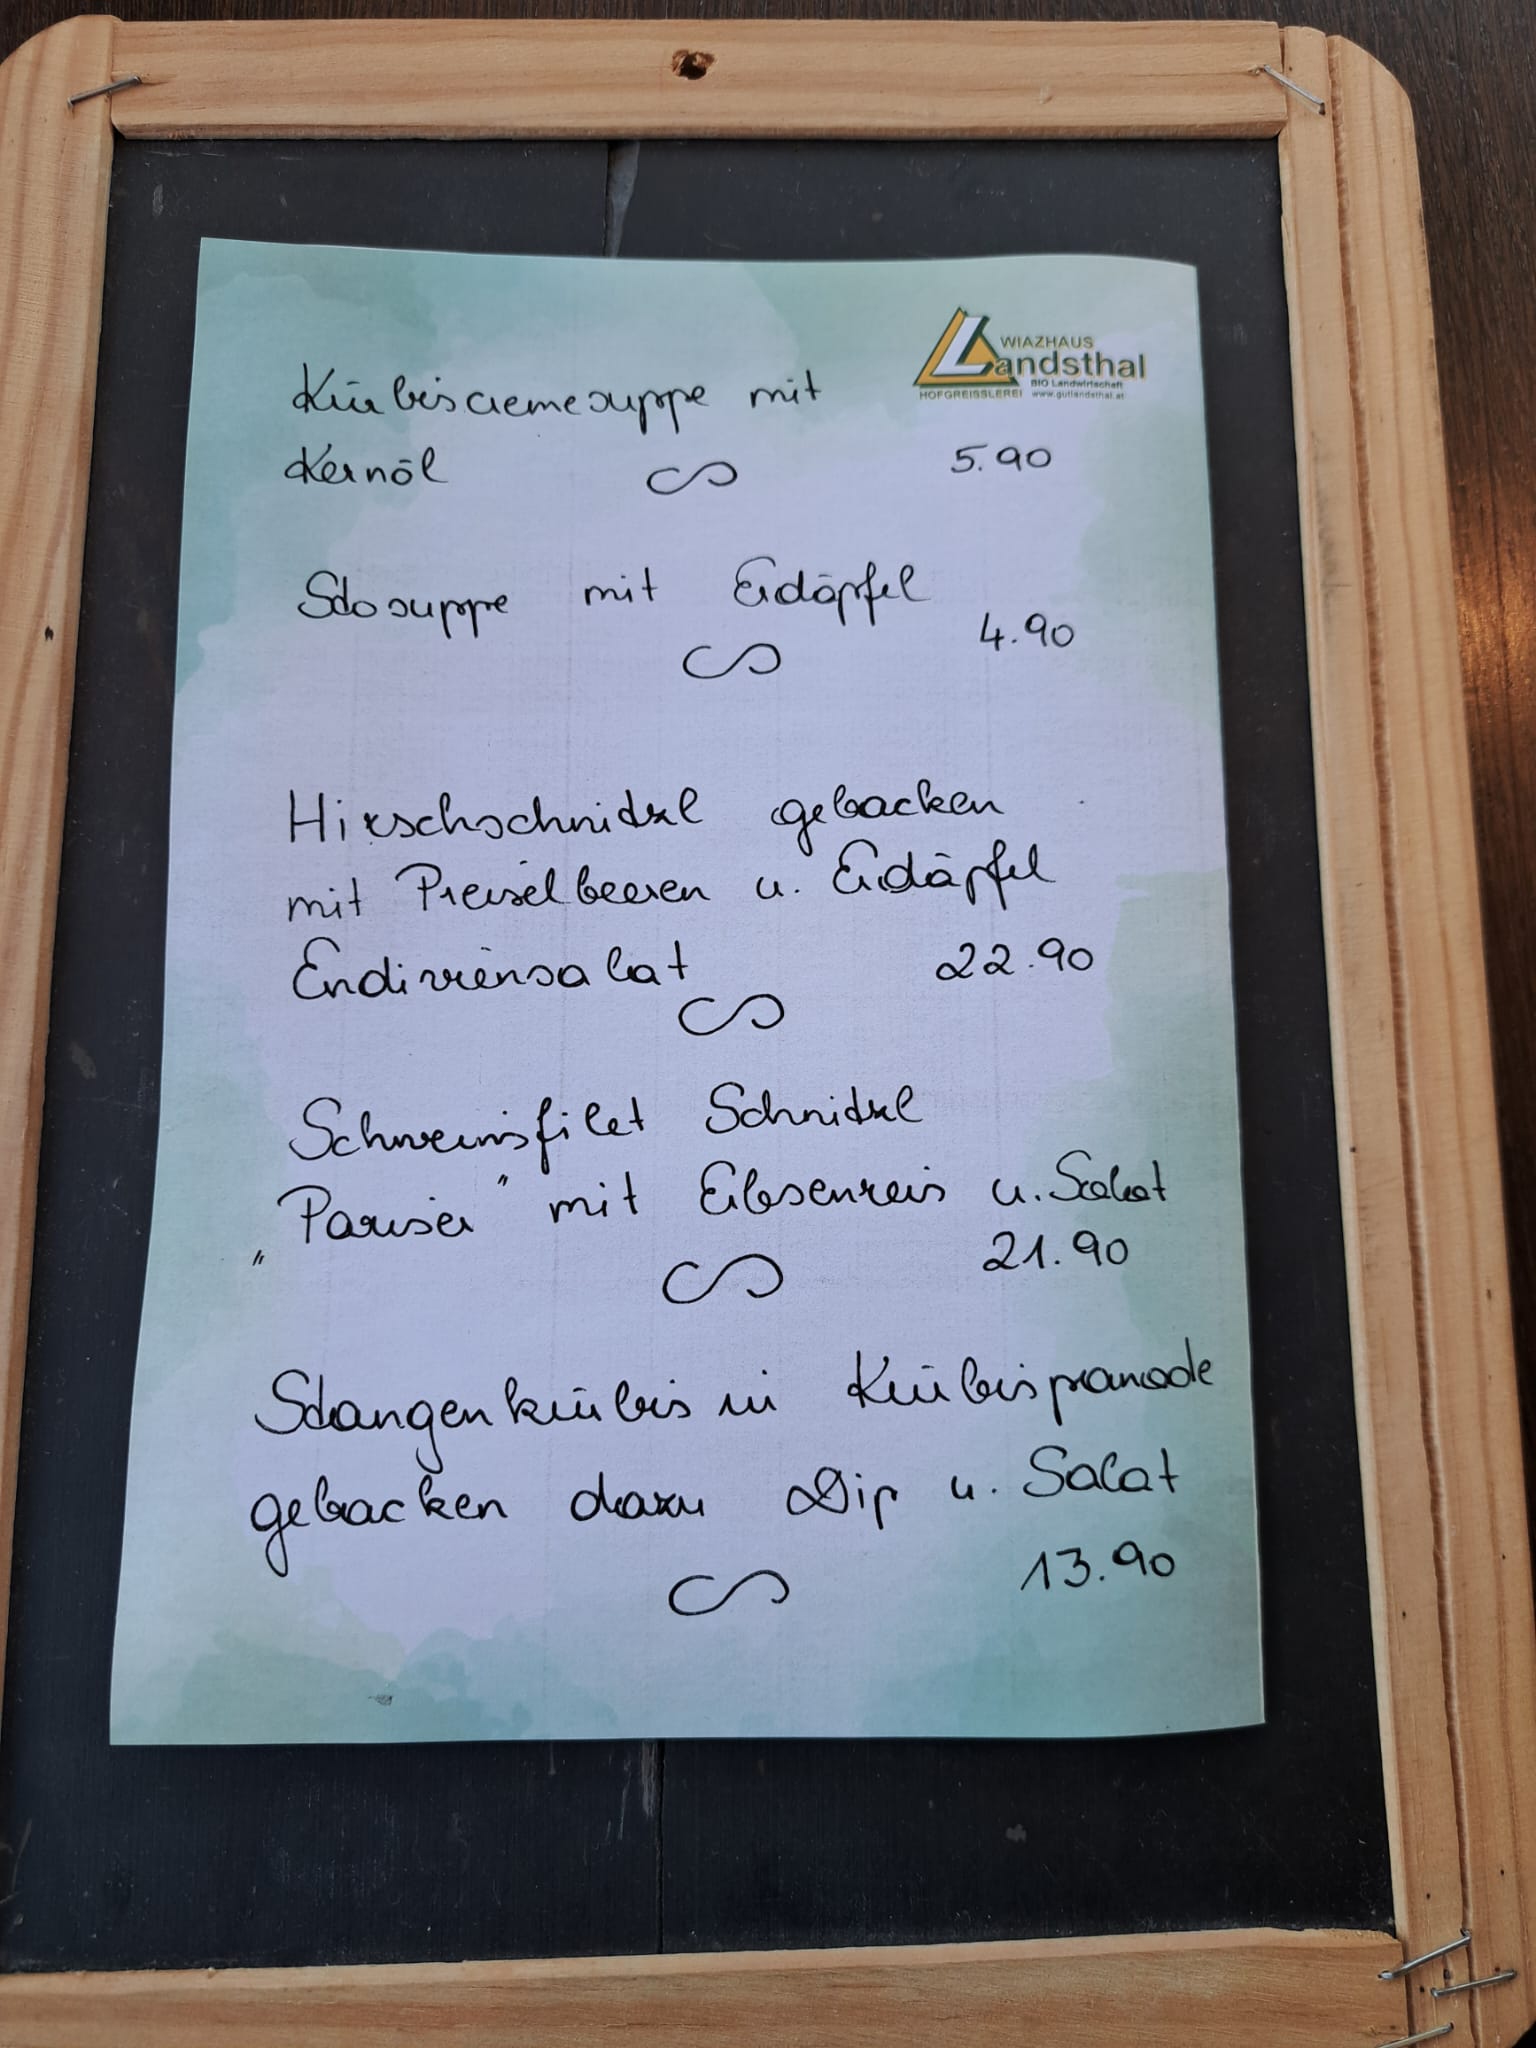 WIAZHAUS
Landsthal
BIO Landwirtschaft
HOFGREISSLEREI www.gutlandsthal.at
Kürbiscremesuppe mit
Kernöl 5.90
Stosuppe mit Erdäpfel
4.90
Hirschschnitzel gebacken
mit Preiselbeeren u. Erdäpfel
Endiviensalat 22.90
Schweinsfilet Schnitzel
"Pariser" mit Erbsenreis u. Salat
21.90
Stangenkürbis in Kürbispanade
gebacken dazu Dip u. Salat
13.90